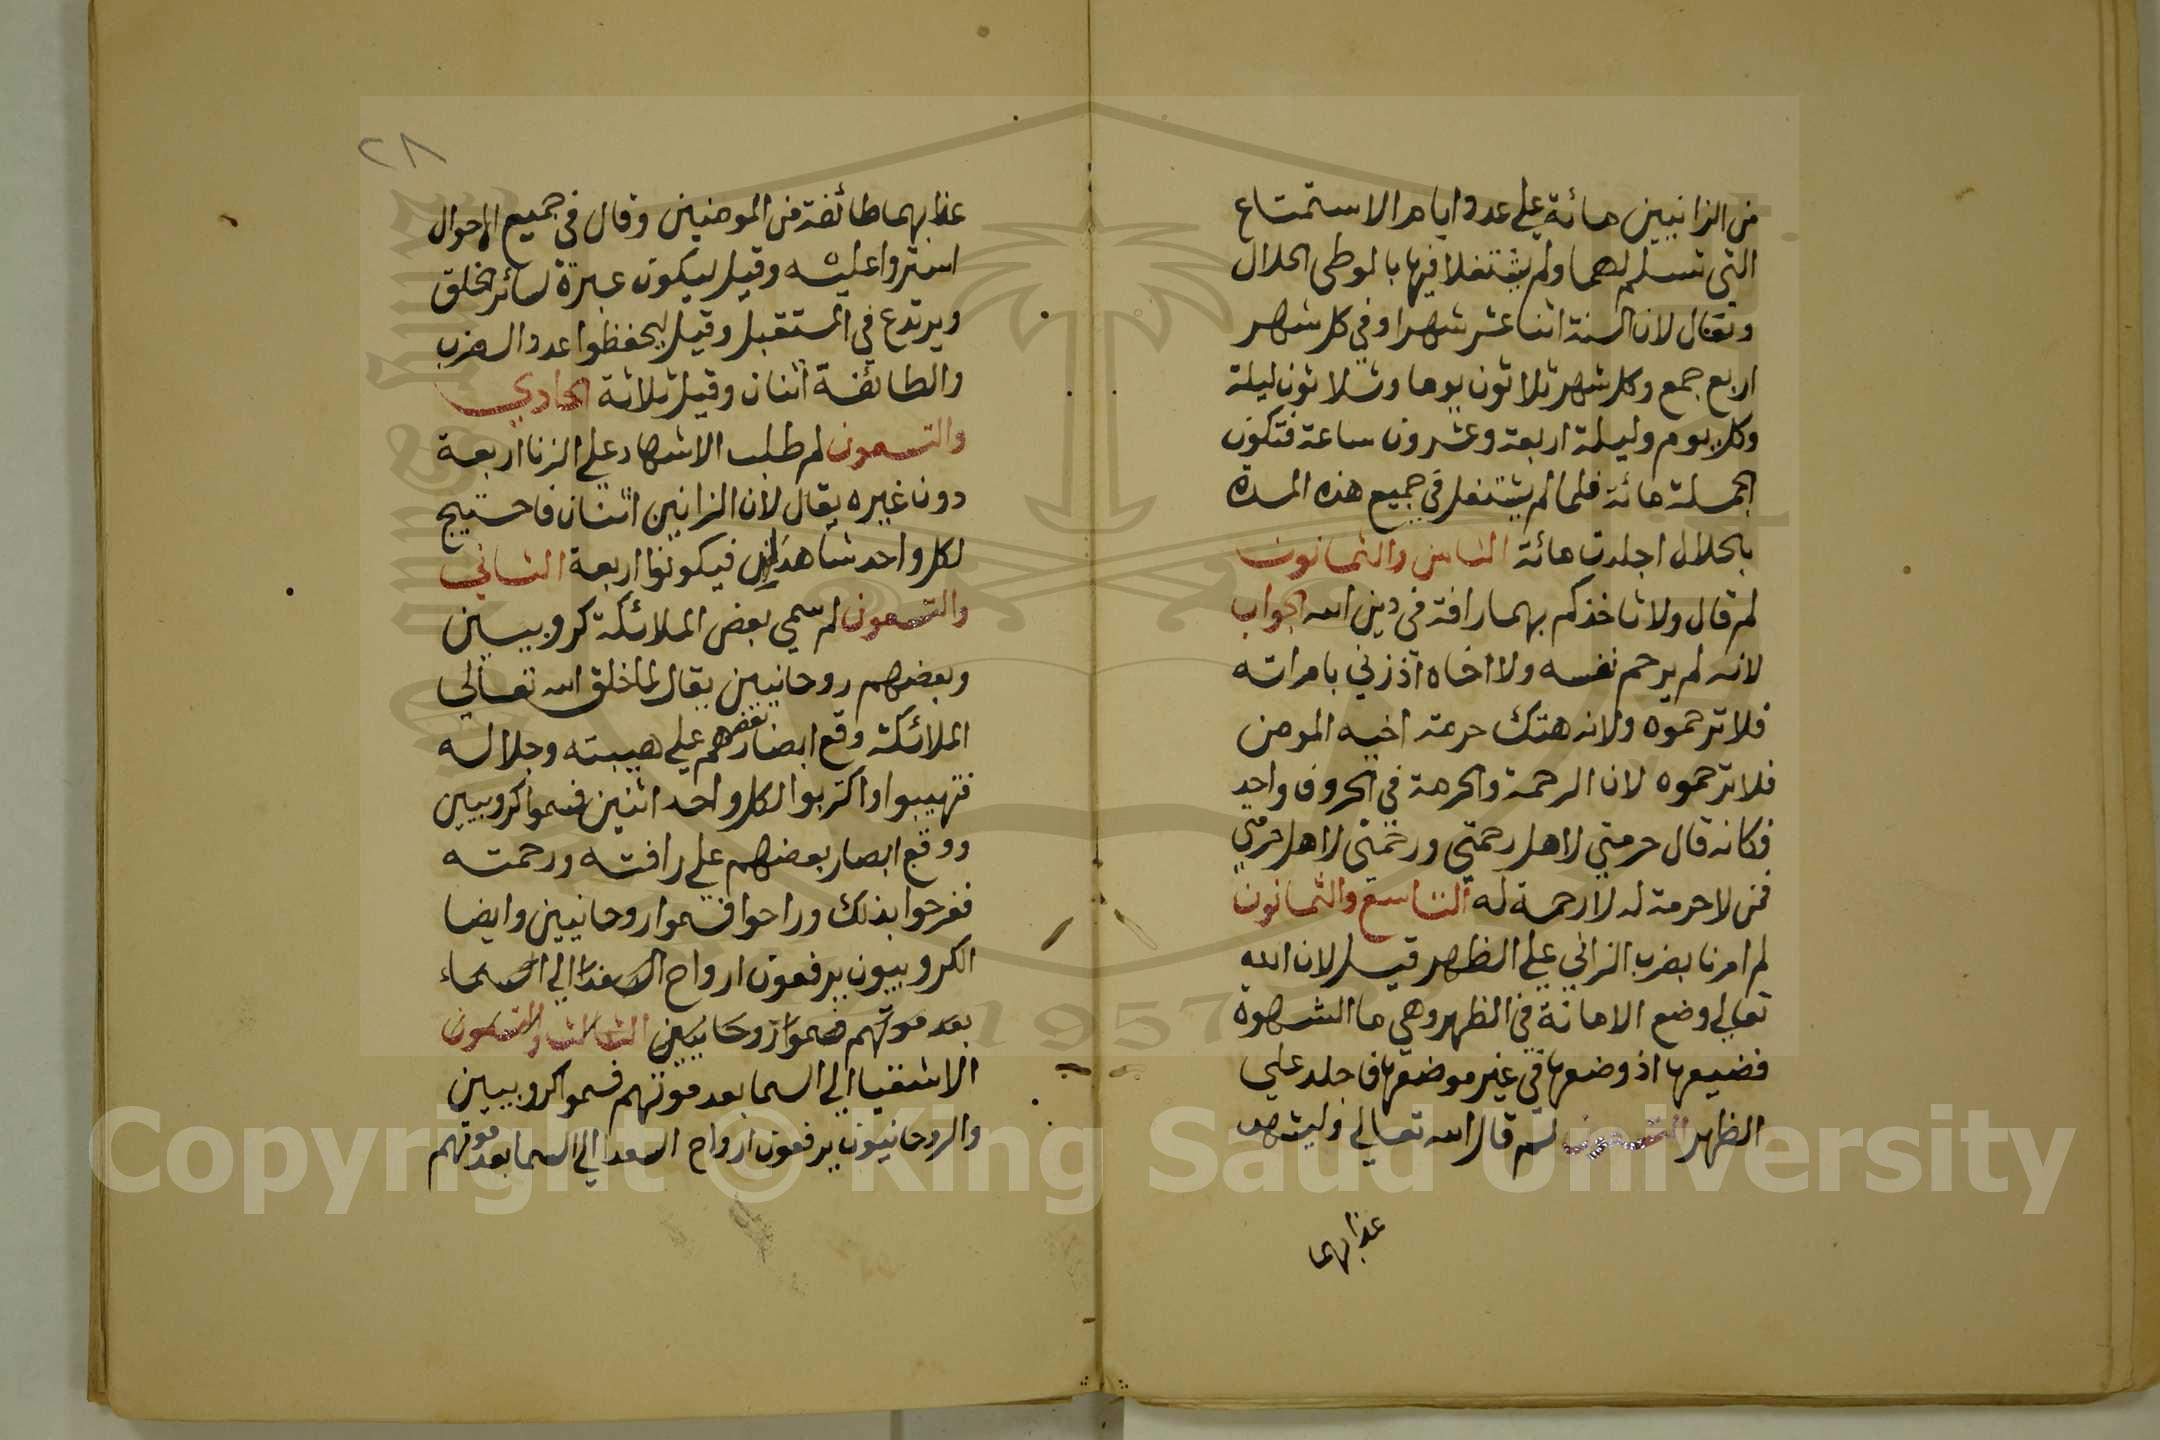 من الزانيين مائة علي عدد ايام الاستمتاع
التي تسلم لهما ولم يشتغلا فيها بالوطي الحلال
ويقال لان السنة اثنا عشر شهرا وفي كل شهر
اربع جمع وكل شهر ثلاثون يوما وثلاثون ليلة
وكل يوم وليلة اربعة وعشرون ساعة فتكون
الجملة مائة فلما لم يشتغل في جميع هذه المدة
بالحلال اجلدت مائة الثامن والثمانون
لم قال ولا تاخذكم بهما رافة في دين الله الجواب
لانه لم يرحم نفسه ولا اخاه اذ زني بامراته
فلا ترحموه ولانه هتك حرمة اخيه المومن
فلا ترحموه لان الرحمة والحرمة في الحروف واحد
فكانه قال حرمتي لاهل رحمتي ورحمتي لاهل حرمتي
فمن لا حرمة له لا رحمة له التاسع والثمانون
لم امرنا بضرب الزاني علي الظهر قيل لان الله
تعالي وضع الامانة في الظهر وهي ما الشهوة
فضيعها اذ وضعها في غير موضعها فاجلد علي
الظهر التسعون لم قال الله تعالي وليشهد
عذابهما
٢٨
عذابهما طائفة من المومنين وقال في جميع الاحوال
استروا عليه وقيل ليكون عبرة لسائر الخلق
ويرتدع في المستقبل وقيل ليحفظوا عدد الضرب
والطائفة اثنان وقيل ثلاثة الحادي
والتسعون لم طلب الاشهاد علي الزنا اربعة
دون غيره يقال لان الزانيين اثنان فاحتيج
لكل واحد شاهدان فيكونوا اربعة الثاني
والتسعون لم سمي بعض الملائكة كروبيين
وبعضهم روحانيين يقال لما خلق الله تعالي
الملائكة وقع ابصار بعضهم علي هيبته وجلاله
فتهيبوا واكتربوا لكل واحد اثنين فسموا كروبيين
ووقع ابصار بعضهم علي رافته ورحمته
ففرحوا بذلك وراحوا فسموا روحانيين وايضا
الكروبيون يرفعون ارواح السعدا الي السماء
بعد موتهم فسموا روحانيين الثالث والتسعون
الاشقيا الي السما بعد موتهم فسموا كروبيين
والروحانيون يرفعون ارواح السعدا الي السما بعد موتهم
Copyright © King Saud University
1957